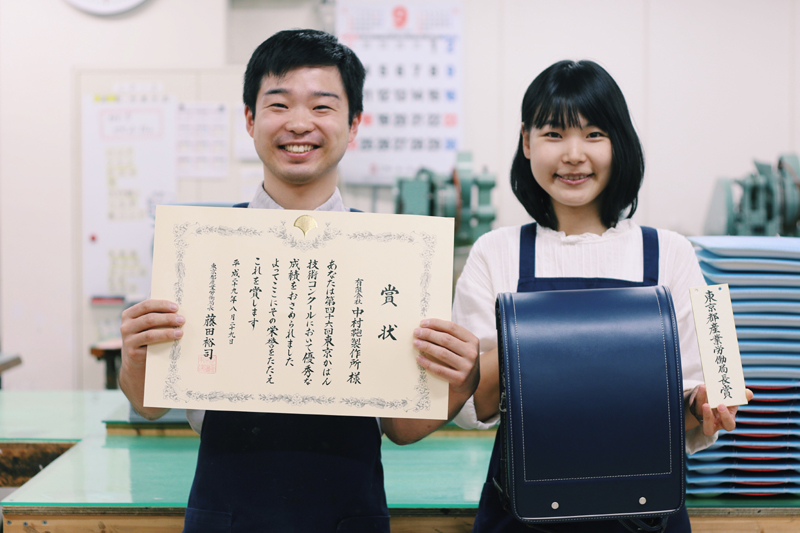 賞状
有限会社 中村鞄製作所様
あなたは第四十六回東京かばん
技術コンクールにおいて優秀な
成績をおさめられました
よってここにその栄誉をたたえ
これを賞します
平成二十九年八月二十九日
東京都産業労働局長 藤田裕司
東京都産業労働局長賞
9